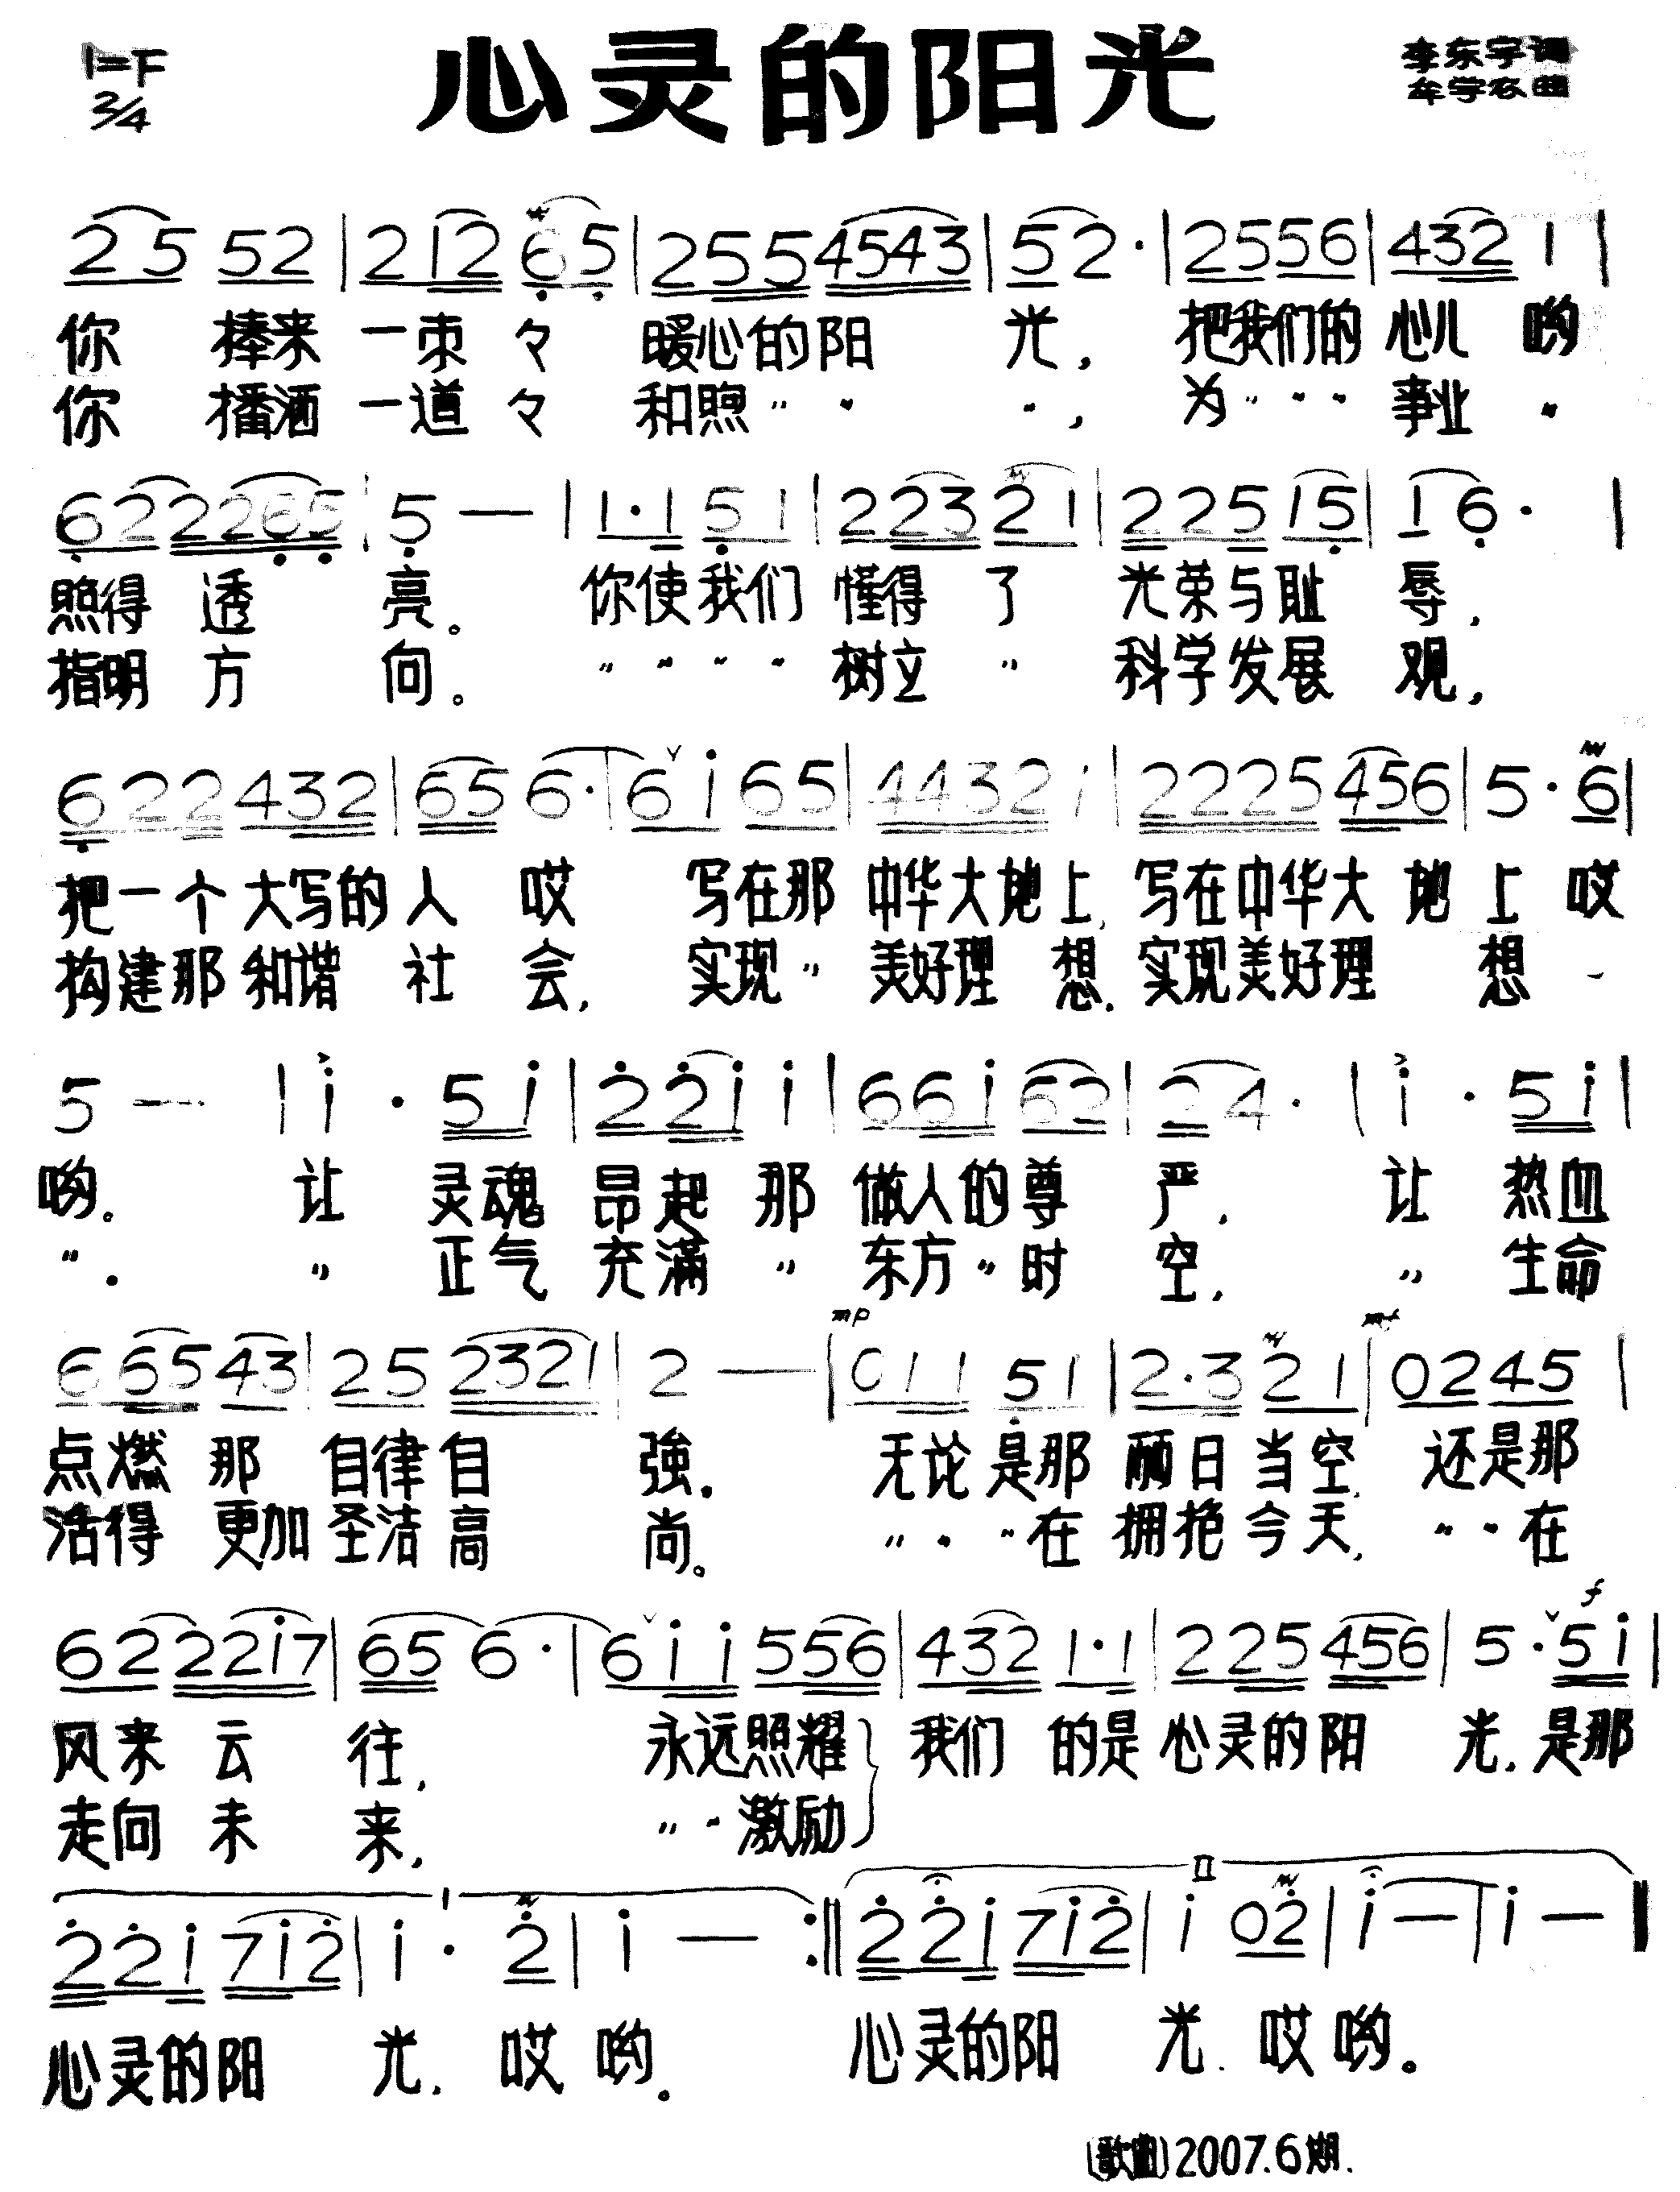 1=F
2/4
心灵的阳光
李东字词
牟学农曲
2 5 5 2 | 2 1 2 6 5 | 2 5 5 4 5 4 3 | 5 2 · | 2 5 5 6 | 4 3 2 1 |
你 捧来 一束 々 暖心的阳 光, 把我们的 心儿 哟
你 播洒 一道 々 和煦 〃 〃 〃, 为 〃 〃 〃 事业 〃
6 2 2 2 6 5 | 5 — | 1 · 1 5 1 | 2 2 3 2 1 | 2 2 5 1 5 | 1 6 · |
照得 透 亮。 你使我们 懂得 了 光荣与耻 辱,
指明 方 向。 〃 〃 〃 〃 树立 〃 科学发展 观,
6 2 2 4 3 2 | 6 5 6 · | 6 i 6 5 | 4 4 3 2 1 | 2 2 2 5 4 5 6 | 5 · 6 |
把一个大写的人 哎 写在那 中华大地上, 写在中华大 地 上 哎
构建那 和谐 社 会, 实现 〃 美好理 想. 实现美好理 想 -
5 — | i · 5 i | 2 2 i i | 6 6 i 6 2 | 2 4 · | i · 5 i |
哟。 让 灵魂 昂起 那 做人的尊 严, 让 热血
〃 . 〃 正气 充满 〃 东方 〃 时 空, 〃 生命
mp mf
6 6 5 4 3 | 2 5 2 3 2 1 | 2 — | 0 1 1 5 1 | 2 · 3 2 1 | 0 2 4 5 |
点燃 那 自律自 強. 无论是那 丽日当空, 还是那
活得 更加 圣洁高 尚。 〃 〃 〃 在 拥抱今天, 〃 〃 在
f
6 2 2 2 i 7 | 6 5 6 · | 6 i i 5 5 6 | 4 3 2 1 · 1 | 2 2 5 4 5 6 | 5 · 5 i |
风来 云 往, 永远照耀 } 我们 的是 心灵的阳 光, 是那
走向 未 来, 〃 〃 激励
I II
2 2 i 7 i 2 | i · 2 | i — :‖ 2 2 i 7 i 2 | i 0 2 | i — | i — ‖
心灵的阳 光, 哎 哟。 心灵的阳 光. 哎 哟。
(歌曲) 2007.6期.